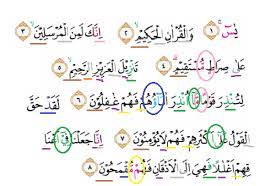 يٰسۤ ۝١ وَالْقُرْاٰنِ الْحَكِيْمِ ۝٢ اِنَّكَ لَمِنَ الْمُرْسَلِيْنَ ۝٣
عَلٰى صِرَاطٍ مُّسْتَقِيْمٍ ۝٤ تَنْزِيْلَ الْعَزِيْزِ الرَّحِيْمِ ۝٥
لِتُنْذِرَ قَوْمًا مَّآ اُنْذِرَ اٰبَاۤؤُهُمْ فَهُمْ غٰفِلُوْنَ ۝٦ لَقَدْ حَقَّ
الْقَوْلُ عَلٰٓى اَكْثَرِهِمْ فَهُمْ لَا يُؤْمِنُوْنَ ۝٧ اِنَّا جَعَلْنَا فِيْٓ اَعْنَاقِهِمْ
اَغْلٰلًا فَهِيَ اِلَى الْاَذْقَانِ فَهُمْ مُّقْمَحُوْنَ ۝٨